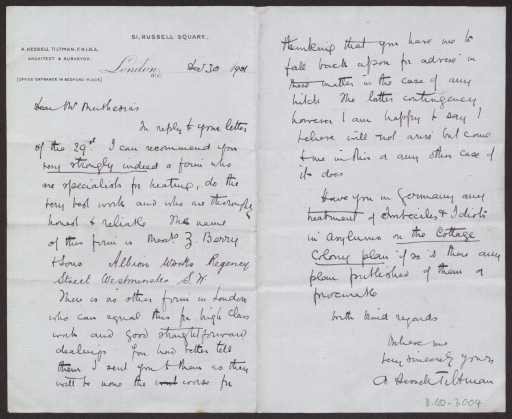 51, RUSSELL SQUARE,
A. HESSELL TILTMAN, F.R.I.B.A.
ARCHITECT & SURVEYOR.
(OFFICE ENTRANCE IN BEDFORD PLACE)
London, W.C. Dec 30 1901
Dear Mr Muthesius
In reply to your letter
of the 29th I can recommend you
very strongly indeed a firm who
are specialists for heating, do the
very best work and who are thoroughly
honest & reliable. The name
of this firm is Messrs Z. Berry
& Sons Albion Works Regency
Street Westminster S.W.
There is no other firm in London
who can equal this for high class
work and good straightforward
dealings. You had better tell
them I sent you to them as they
will be none the worse for
thinking that you have me to
fall back upon for advice in
matter in the case of any
hitch. The latter contingency
however I am happy to say I
believe will not arise but come
to me in this or any other case if
it does
Have you in Germany any
treatment of Imbeciles & Idiots
in asylums on the Cottage
Colony plan if so is there any
plan published of them &
procurable
With kind regards
Believe me
Very sincerely yours
A Hessell Tiltman